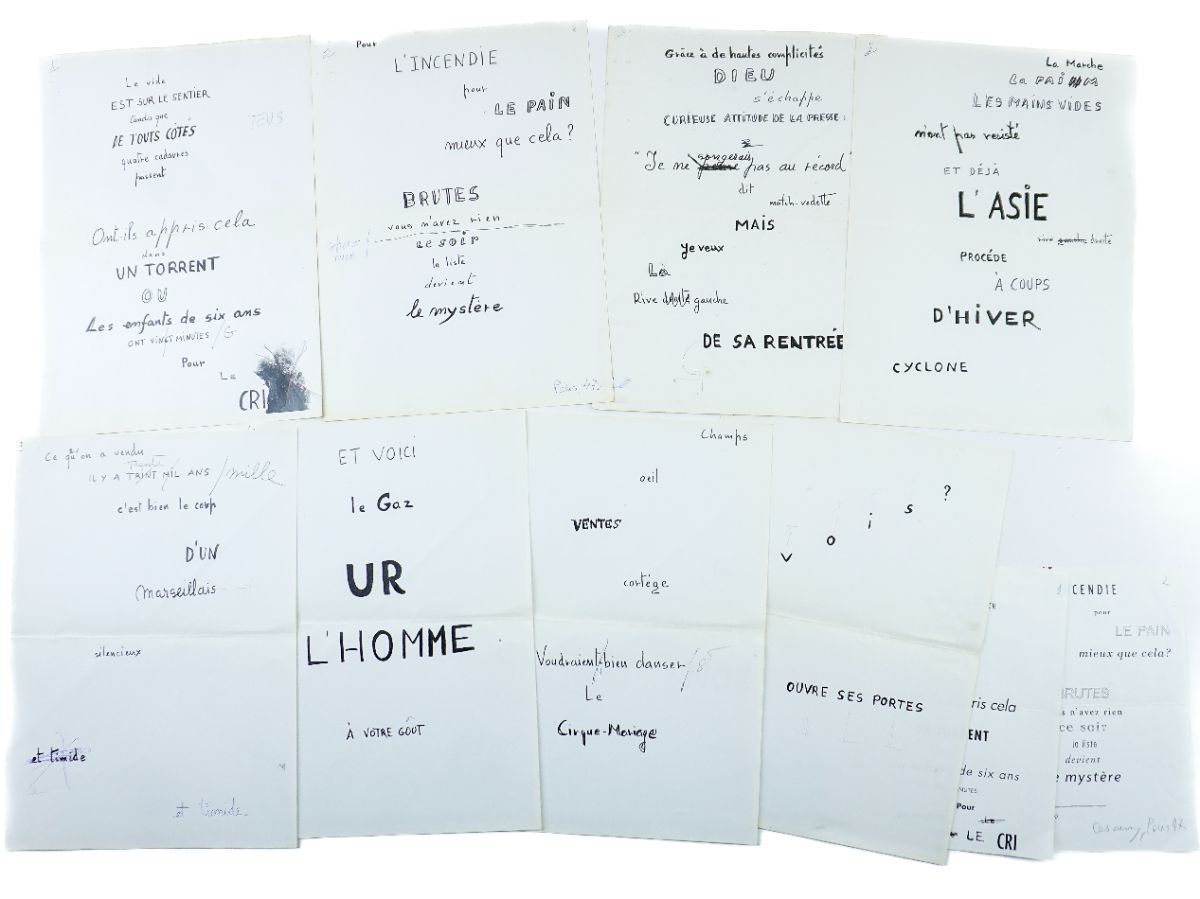 Le vide
EST SUR LE SENTIER
tandis que
DE TOUTS CÔTÉS
quatre cadavres
passent
Ont-ils appris cela
dans
UN TORRENT
OU
Les enfants de six ans
ONT VINGT MINUTES
Pour
Le
CRI
Pour
L'INCENDIE
pour
LE PAIN
mieux que cela?
BRUTES
vous n'avez rien
CE SOIR
la liste
devient
le mystère
Paris 47
Grâce à de hautes complicités
DIEU
s'échappe
CURIEUSE ATTITUDE DE LA PRESSE:
"Je ne songerais pas au récord"
dit
match-vedette
MAIS
Je veux
La
Rive droite gauche
DE SA RENTRÉE
La Marche
LES MAINS VIDES
n'ont pas resisté
ET DÉJÀ
L'ASIE
rive gauche droite
PROCÉDE
À COUPS
D'HIVER
CYCLONE
Ce qu'on a vendu
Trente
IL Y A TRINT MIL ANS /mille
c'est bien le coup
D'UN
Marseillais
silencieux
et timide
et timide
ET VOICI
le Gaz
UR
L'HOMME
À VOTRE GÔUT
Champs
oeil
VENTES
cortége
Voudraient bien danser
Le
Cirque-Mariage
V o i s ?
OUVRE SES PORTES
ris cela
ENT
de six ans
Pour
LE CRI
2
CENDIE
pour
LE PAIN
mieux que cela?
BRUTES
s n'avez rien
ce soir
la liste
devient
mystère
Cesariny, Paris 47